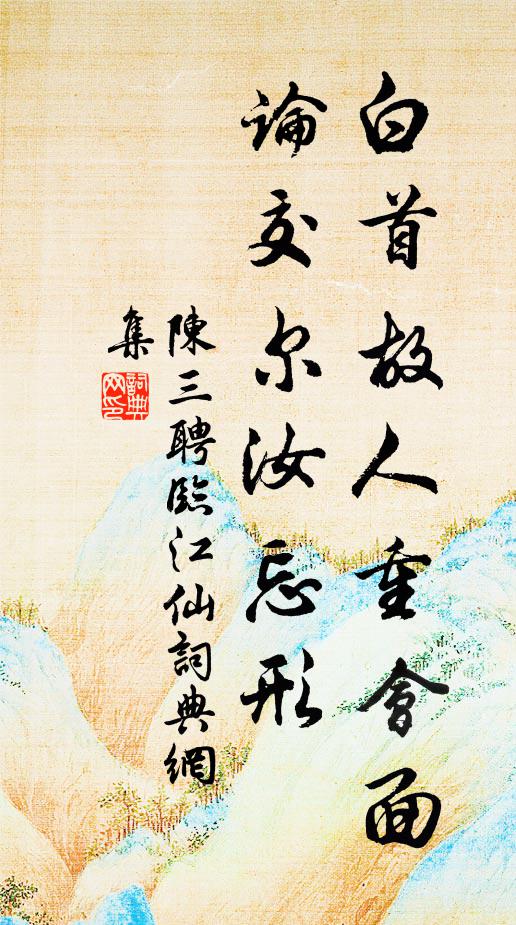 白首故人重會面
論交尔汝忘形
陳三聘臨江仙詞典網
集
詞典
网印